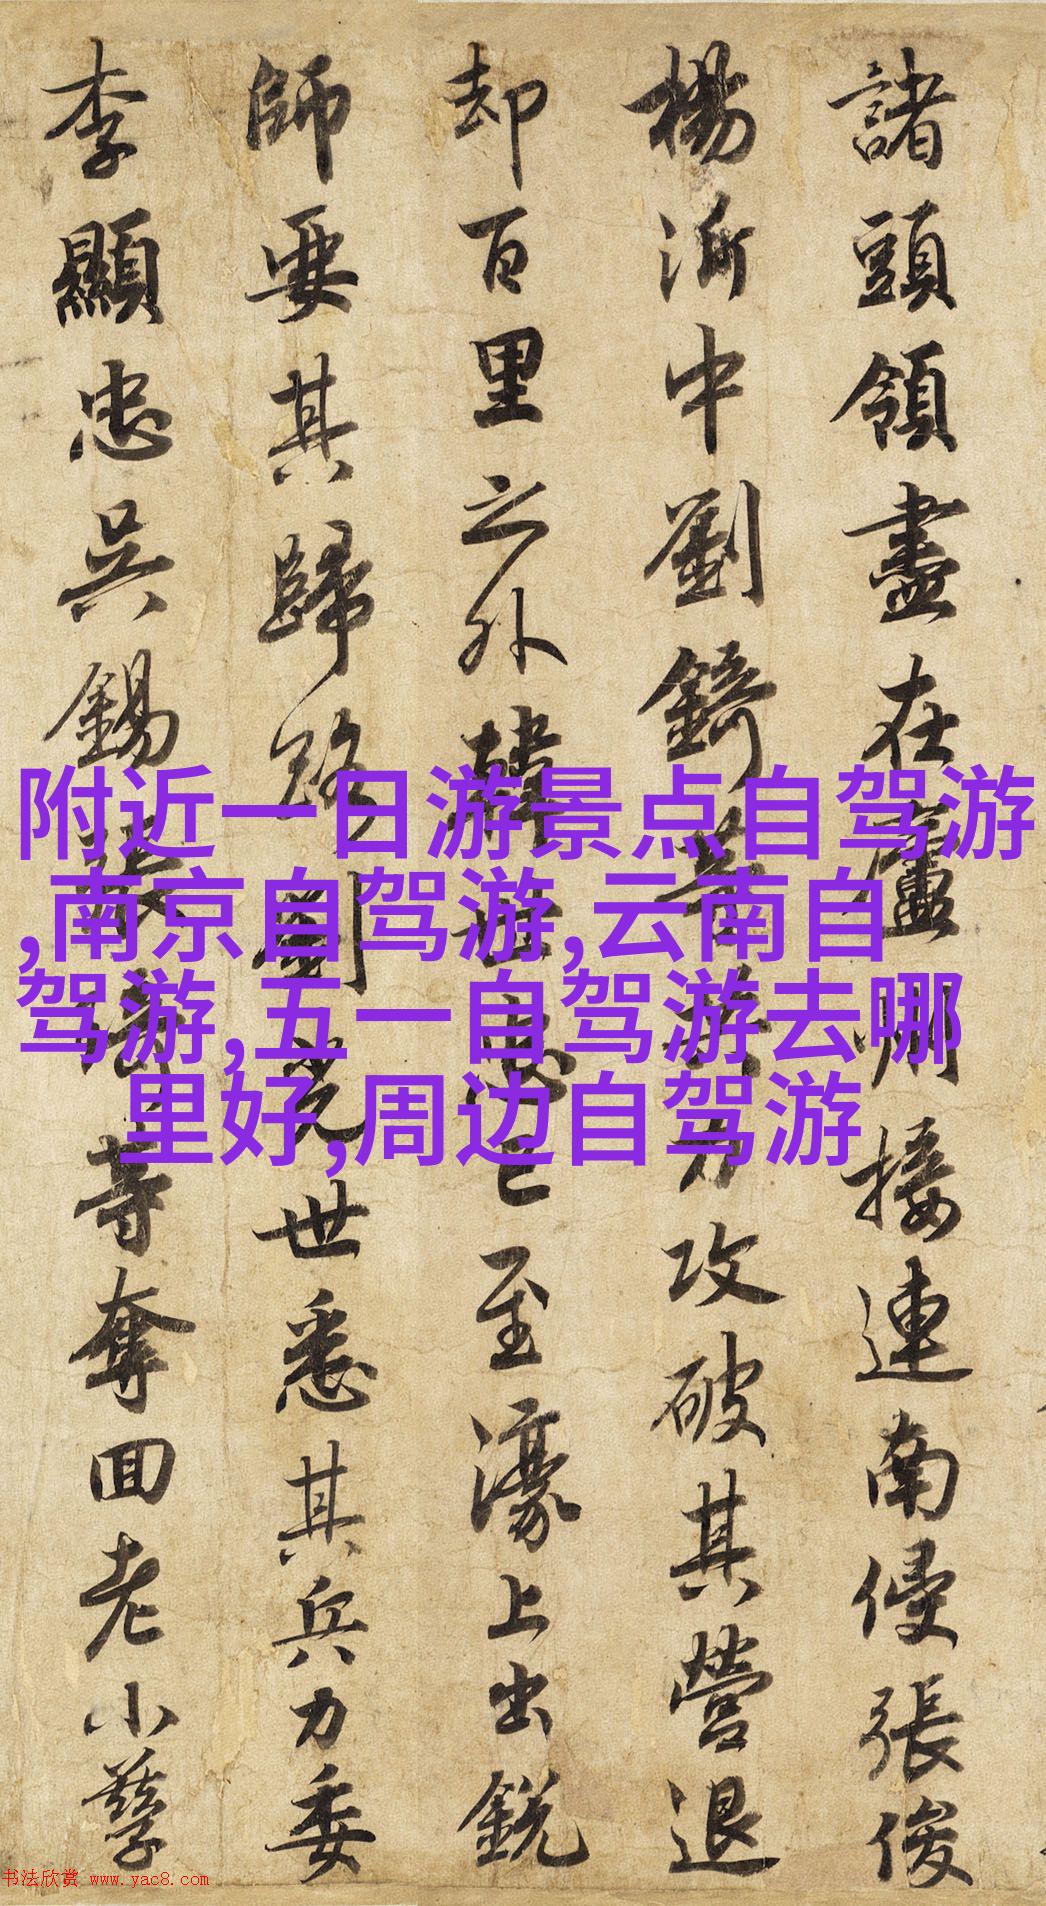 諸頭領盡在廬州接連南侵張俊
楊沂中劉錡等力攻破其營退
却百里之外韓世忠已至濠上出銳
師要其歸路劉光世悉其兵力委
李顯忠吳錫張琦等奪回老小孳
附近一日游景点自驾游
,南京自驾游,云南自
驾游,五一自驾游去哪
里好,周边自驾游
书法欣赏 www.yac8.com